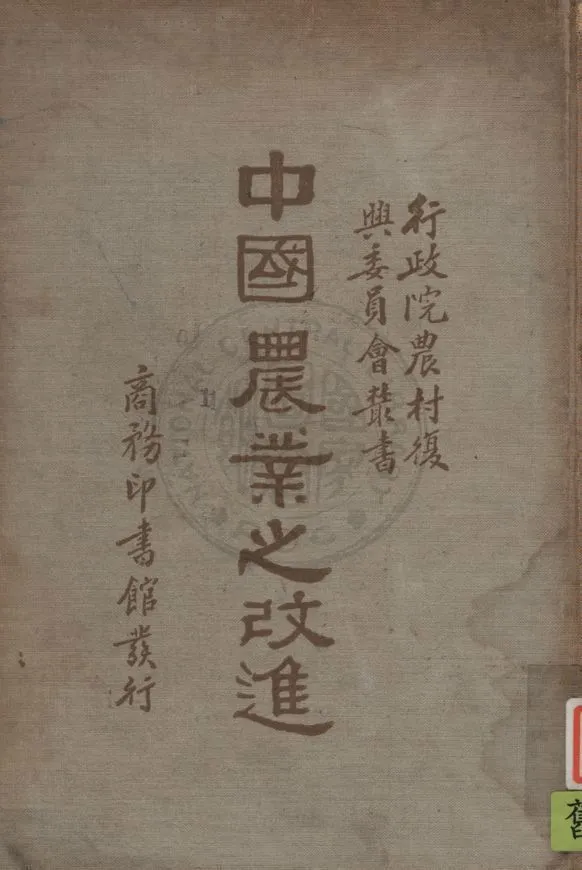 行政院農村復
興委員會叢書
中國農業之改進
商務印書館發行
NATIONAL CENTRAL
舊